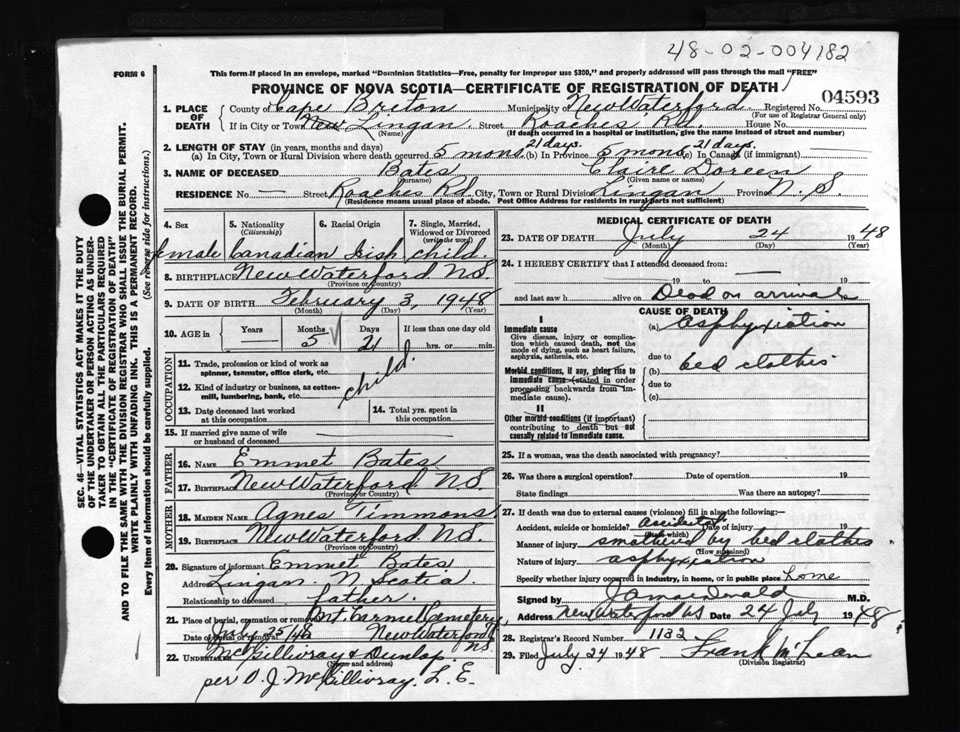 48-02-004182
FORM 6
This form if placed in an envelope, marked "Dominion Statistics—Free, penalty for improper use $300," and properly addressed will pass through the mail "FREE"
PROVINCE OF NOVA SCOTIA—CERTIFICATE OF REGISTRATION OF DEATH
04593
1. PLACE OF DEATH
County of Cape Breton Municipality New Waterford Registered No.
(For use of Registrar General only)
If in City or Town New Lingan. Street Roaches Rd. House No.
(Name) (If death occurred in a hospital or institution, give the name instead of street and number)
2. LENGTH OF STAY (in years, months and days)
(a) In City, Town or Rural Division where death occurred 5 mons 21 days. (b) In Province 5 mons 21 days. (c) In Canada (if immigrant)
3. NAME OF DECEASED Bates Claire Doreen
(Surname) (Given name or names)
RESIDENCE No. — Street Roaches Rd City, Town or Rural Division Lingan Province N. S.
(Residence means usual place of abode. Post Office Address for residents in rural parts not sufficient)
SEC. 46—VITAL STATISTICS ACT MAKES IT THE DUTY
OF THE UNDERTAKER OR PERSON ACTING AS UNDER-
TAKER TO OBTAIN ALL THE PARTICULARS REQUIRED
IN THE "CERTIFICATE OF REGISTRATION OF DEATH"
AND TO FILE THE SAME WITH THE DIVISION REGISTRAR WHO SHALL ISSUE THE BURIAL PERMIT.
WRITE PLAINLY WITH UNFADING INK. THIS IS A PERMANENT RECORD.
Every item of Information should be carefully supplied. (See reverse side for instructions.)
4. Sex
female
5. Nationality
(Citizenship)
Canadian
6. Racial Origin
Irish
7. Single, Married,
Widowed or Divorced
(write the word)
child.
8. BIRTHPLACE New Waterford N.S.
(Province or Country)
9. DATE OF BIRTH February 3, 1948
(Month) (Day) (Year)
10. AGE in
Years
Months
5
Days
21
If less than one day old
hrs. or min.
OCCUPATION
11. Trade, profession or kind of work as
spinner, teamster, office clerk, etc.
12. Kind of industry or business, as cotton-
mill, lumbering, bank, etc.
child.
13. Date deceased last worked
at this occupation
14. Total yrs. spent in
this occupation
15. If married give name of wife
or husband of deceased
FATHER
16. NAME Emmet Bates
17. BIRTHPLACE New Waterford N.S.
(Province or Country)
MOTHER
18. MAIDEN NAME Agnes Timmons
19. BIRTHPLACE New Waterford N.S.
(Province or Country)
20. Signature of informant Emmet Bates
Address Lingan. N Scotia
Relationship to deceased father.
21. Place of burial, cremation or removal Mt. Carmel Cemetery,
Date of burial or removal July 25/48 New Waterford N.S.
22. UNDERTAKER McGillivray & Dunlap.
(Name and address)
per D. J. McGillivray. L. E.
MEDICAL CERTIFICATE OF DEATH
23. DATE OF DEATH July 24 1948
(Month) (Day) (Year)
24. I HEREBY CERTIFY that I attended deceased from —
19 to 19
and last saw h alive on Dead on arrival
I
Immediate cause
Give disease, injury or complica-
tion which caused death, not the
mode of dying, such as heart failure,
asphyxia, asthenia, etc.
Morbid conditions, if any, giving rise to
immediate cause (stated in order
proceeding backwards from im-
mediate cause).
II
Other morbid conditions (if important)
contributing to death but not
causally related to immediate cause.
CAUSE OF DEATH
(a) asphyxiation
due to
(b) bed clothes
due to
(c)
25. If a woman, was the death associated with pregnancy?
26. Was there a surgical operation? Date of operation 19
State findings Was there an autopsy?
27. If death was due to external causes (violence) fill in also the following:—
Accident, suicide or homicide? accidental Date of injury 19
(State which)
Manner of injury smothered by bed clothes
(How sustained)
Nature of injury asphyxiation
Specify whether injury occurred in industry, in home, or in public place home
Signed by M.D.
Address New Waterford NS Date 24 July 1948
28. Registrar's Record Number 1132
29. Filed July 24 1948 Frank McLean
(Division Registrar)